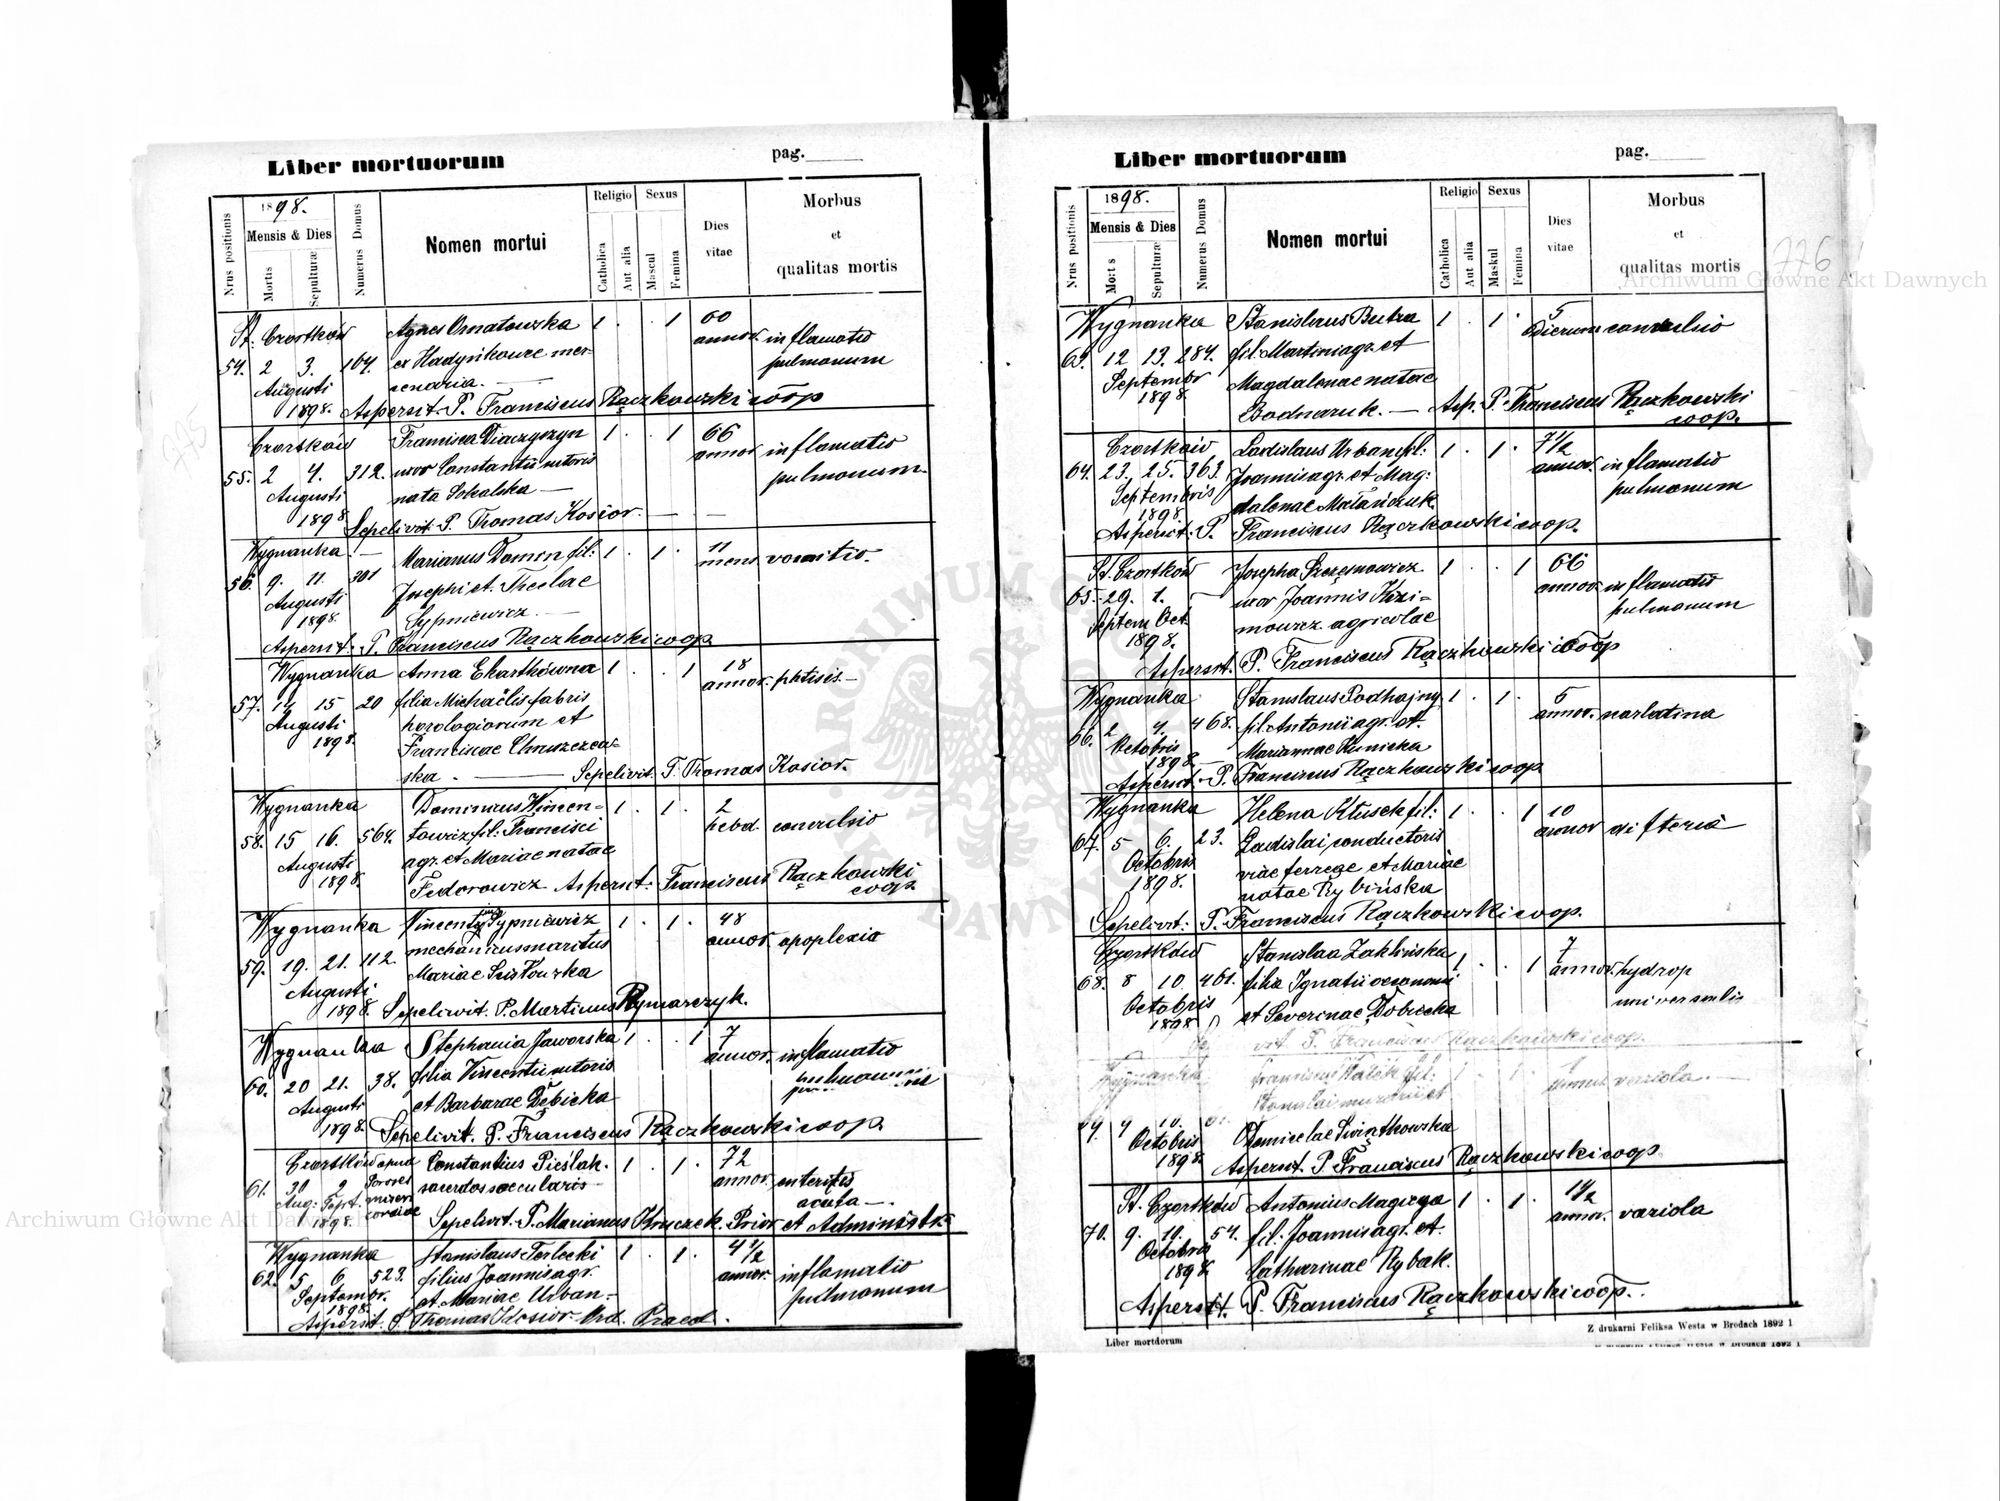 Liber mortuorum pag.
Nrus positionis
1898.
Mensis & Dies
Mortis
Sepulturæ
Numerus Domus
Nomen mortui
Religio
Catholica
Aut alia
Sexus
Mascul
Femina
Dies vitae
Morbus
et
qualitas mortis
St. Czortków Agnes Ornatowska 1 . . 1 60
54. 2 3. 104. ex Hadyńkowce mer- annor. inflamatio
Augusti cenaria. — pulmonum
1898. Aspersit P. Franciscus Rączkowski coop
Czortków Francisca Diaczyszyn 1 . . 1 66
55. 2 4. 312. uxor Constantii sutoris annor inflamatio
Augusti nata Sokalska — pulmonum
1898 Sepelivit P. Thomas Kosior. — —
Wygnanka — Marianus Domin fil: 1 . 1 . 11
56. 9. 11. 301 Josephi et Theclae mens vomitio.
Augusti Sypniewicz. —
1898.
Aspersit P. Franciscus Rączkowski coop
Wygnanka Anna Ekartkówna 1 . . 1 18
57. 14 15 20 filia Michaëlis fabris annor. phtisis —
Augusti horologiorum et
1898. Franciscae Chruszczew-
ska . — Sepelivit P. Thomas Kosior.
Wygnanka Dominicus Wincen- 1 . 1 . 2
58. 15 16. 564. towicz fil: Francisci hebd. convulsio
Augusti agr. et Mariae natae
1898. Fedorowicz Aspersit: Franciscus Rączkowski
coop.
Wygnanka Vincenty Sypniewicz 1 . 1 . 48
59. 19. 21. 112. mechanicus maritus annor. apoplexia
Augusti Mariae
1898. Sepelivit P. Martinus Rymarczyk.
Wygnanka Stephania Jaworska 1 . . 1 7
60. 20 21. 38. filia Vincentii sutoris annor. inflamatio
Augusti et Barbarae Dębicka pulmonum
1898. Sepelivit. P. Franciscus Rączkowski coop.
Czortków apud Constantius Pieślak. 1 . 1 . 72
61. 30 2 Sorores sacerdos saecularis annor. enteritis
Aug: Sept. miseri acuta —
1898. cordiae Sepelivit P. Marianus Kruczek Prior et Administr.
Wygnanka Stanislaus Terlecki 1 . 1 . 4 1/2
62. 5 6 523. filius Joannis agr. annor. inflamatio
Septembr. et Mariae Urban — pulmonum
1898.
Aspersit P. Thomas Kosior Ord. Praed.
Liber mortuorum pag.
Nrus positionis
1898.
Mensis & Dies
Mortis
Sepulturæ
Numerus Domus
Nomen mortui
Religio
Catholica
Aut alia
Sexus
Maskul
Femina
Dies vitae
Morbus
et
qualitas mortis
776
Wygnanka Stanislaus Butra 1 . 1 . 5
63. 12 13. 284. fil. Martini agr. et dierum convulsio
Septembr Magdalenae natae
1898 Bodnaruk. — Asp. P. Franciscus Rączkowski
coop.
Czortków Ladislaus Urban fil: 1 . 1 . 7 1/2
64. 23. 25. 363. Joannis agr. et Mag- annor. inflamatio
Septembris dalenae Matańczuk. pulmonum
1898.
Aspersit: P. Franciscus Rączkowski coop.
St. Czortków Josepha 1 . . 1 66
65. 29. 1. — uxor Joannis annor. inflamatio
Septem. Oct. agricolae pulmonum
1898.
Aspersit. P. Franciscus Rączkowski coop
Wygnanka Stanislaus Podhajny 1 . 1 . 5
66. 2 4. 468. fil. Antonii agr. et annor. scarlatina
Octobris Mariannae Kunicka
1898 —
Aspersit P. Franciscus Rączkowski coop
Wygnanka Helena Kłusek fil: 1 . . 1 10
67. 5 6. 23. Ladislai conductoris annor difteria
Octobris viae ferreae et Mariae
1898. natae Rybińska
Sepelivit: P. Franciscus Rączkowski coop.
Czortków Stanislaa Zaklińska 1 . . 1 7
68. 8 10. 461. filia Ignatii oeconomi annor. hydrop
Octobris et Severinae Dobiecka universalis
1898
P. Franciscus Rączkowski coop.
Wygnanka Franciscus fil: variola. —
Stanislai et
69. 9 10. Domicelae Świątkowska
Octobris
1898. Aspersit P. Franciscus Rączkowski coop
St. Czortków Antonius Magiera 1 . 1 . 1 1/2
70. 9. 10. 54. fil. Joannis agr. et annor. variola
Octobris Catharinae Rybak.
1898.
Aspersit. P. Franciscus Rączkowski coop.
Liber mortdorum
Z drukarni Feliksa Westa w Brodach 1892 1
775
Archiwum Główne Akt Dawnych
Archiwum Główne Akt Dawnych
ARCHIWUM GŁÓWNE AKT DAWNYCH